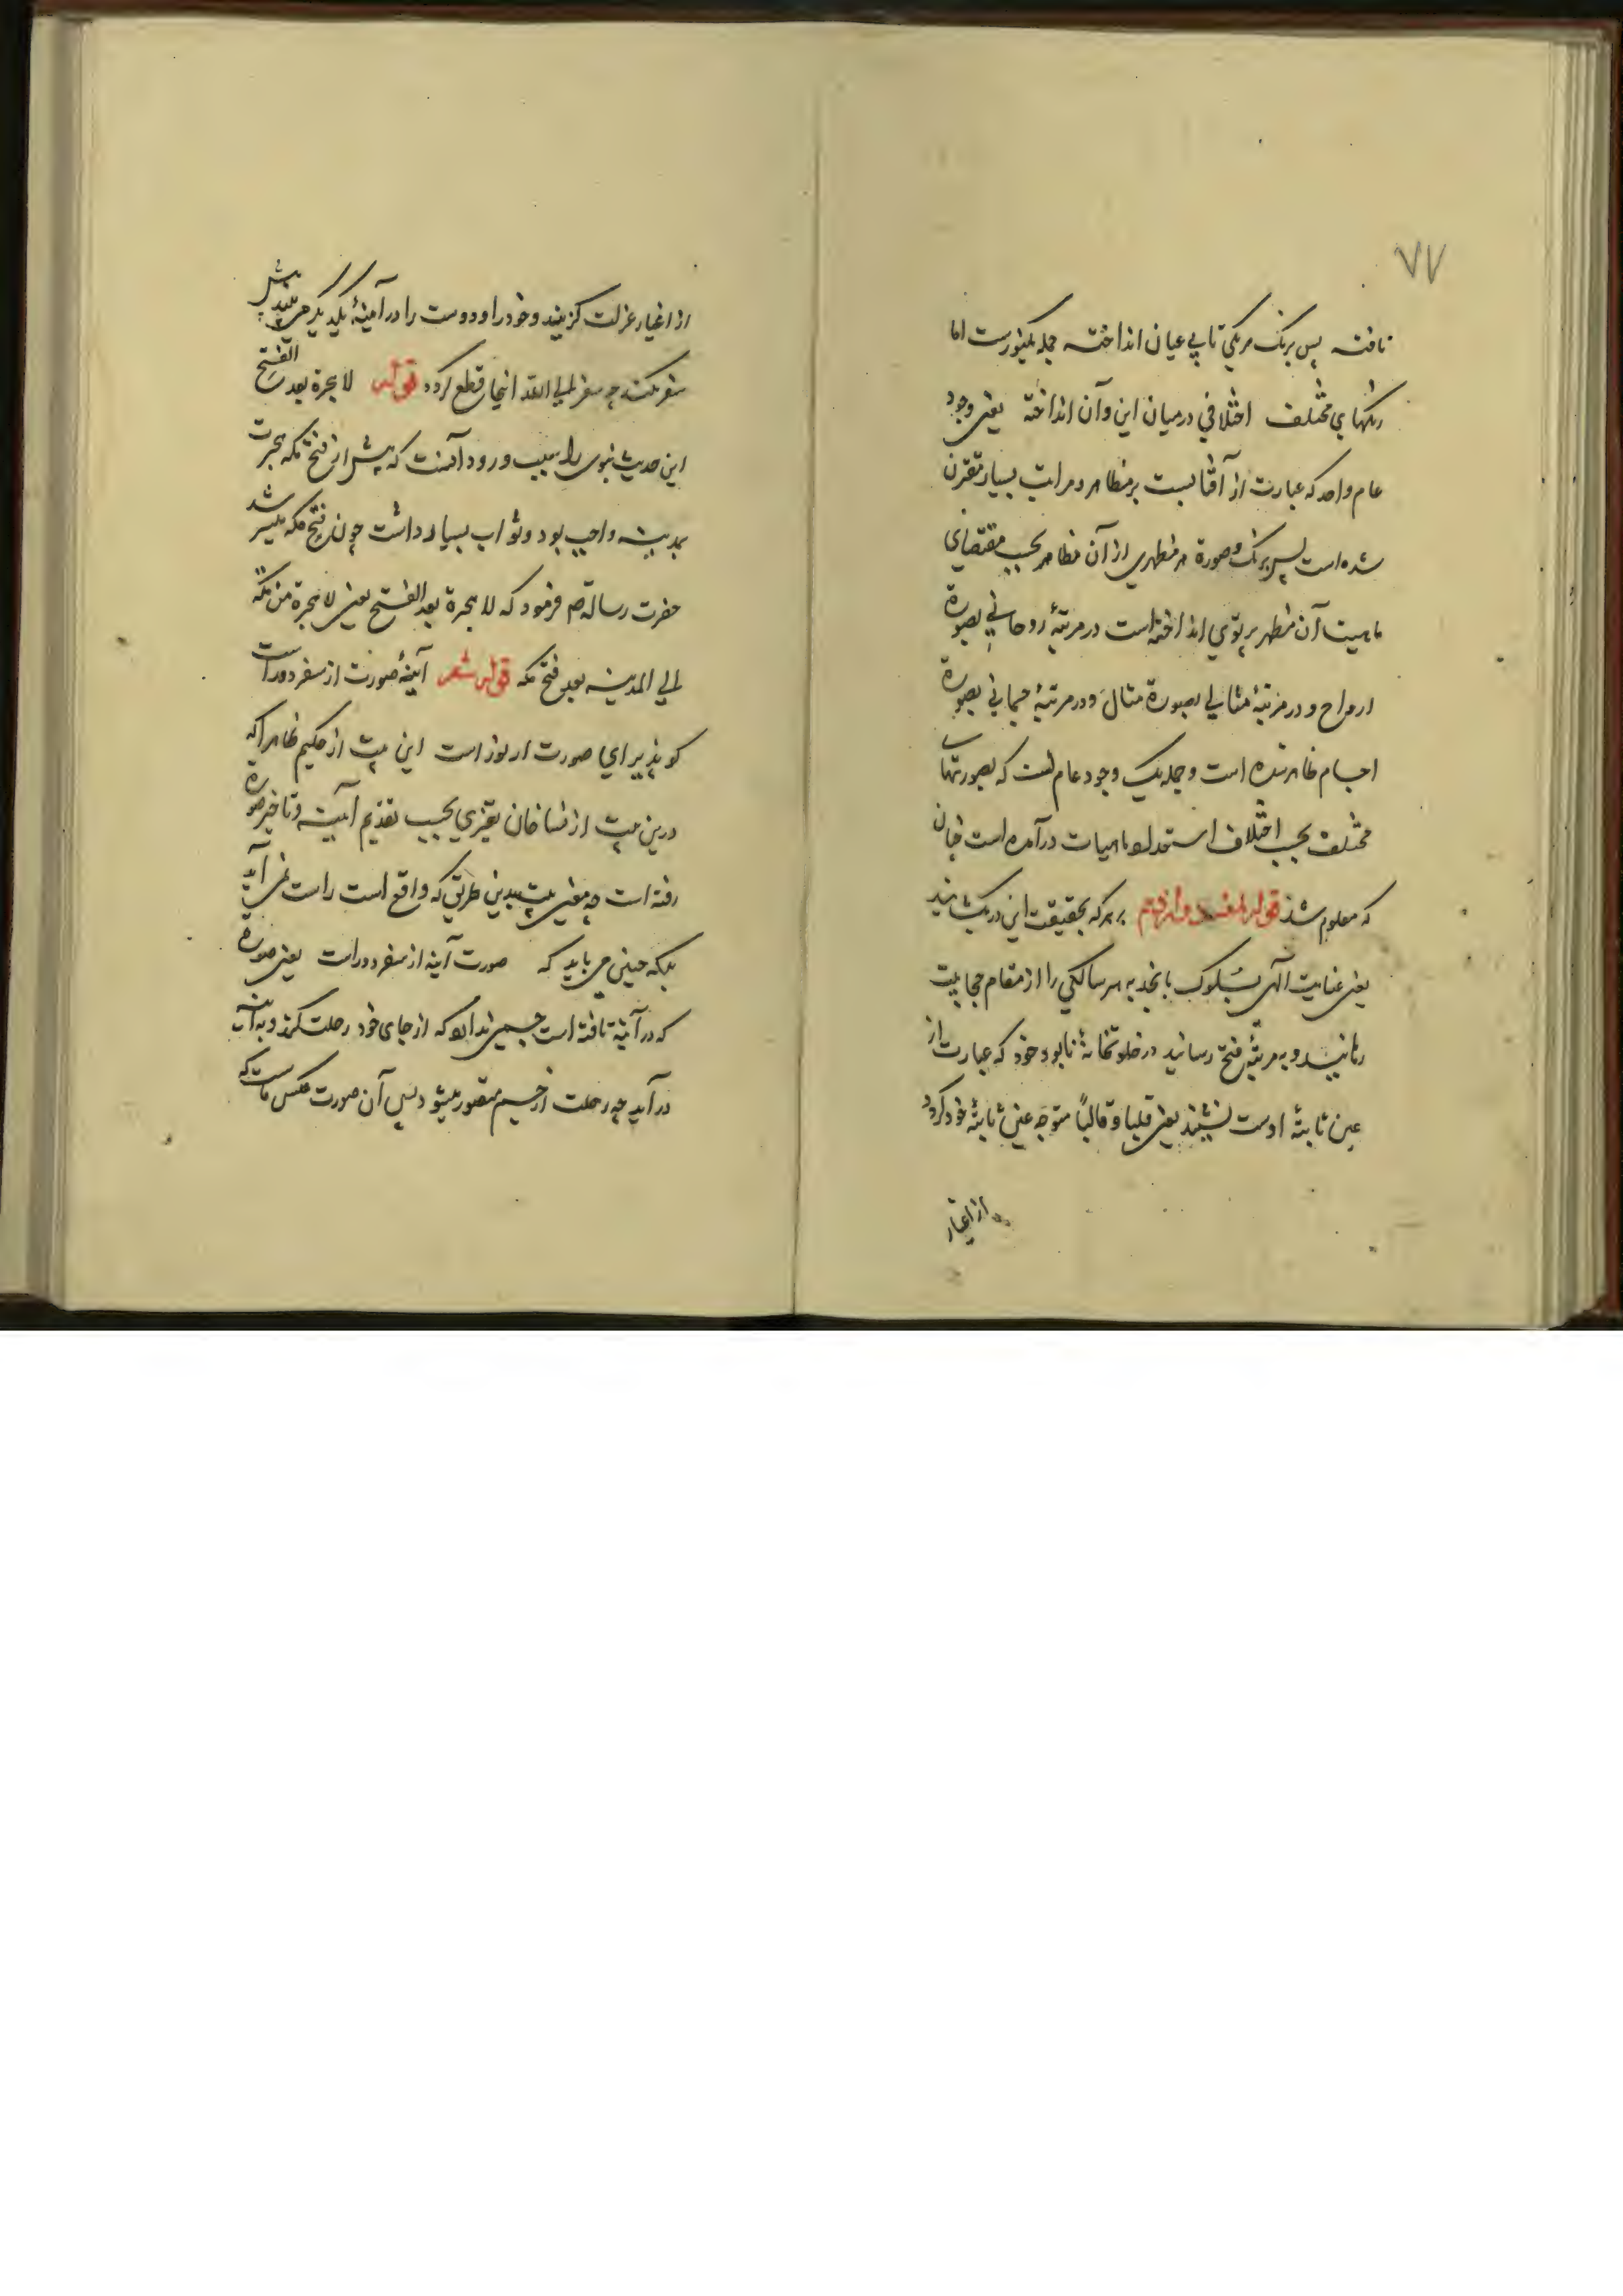 ۷۷
تافته پس برنک هریکی تابی عیان انداخته جمله یکنورست اما
رنکهای مختلف اختلافی درمیان این وآن انداخته یعنی وجود
عام واحد که عبارت از آفتابست بر مظاهر و مراتب بسیار مقترن
شده است پس برنک وصورة هر مظهری از آن مظاهر بحسب مقتضای
ماهیت آن مظهر پرتوی انداخته است در مرتبهٔ روحانی بصورة
ارواح و در مرتبهٔ مثالی بصورة مثال و در مرتبهٔ جسمانی بصورة
اجسام ظاهر شده است وجمله یک وجود عام است که بصورتهای
مختلف بحسب اختلاف استعداد ماهیات درآمده است چنان
که معلوم شد قوله بر هرکه بحقیقت این در بکشایند
یعنی عنایت الهی بسلوک یا بجذبه هر سالکی را از مقام حجابیت
رهانید و به مرتبهٔ فتح رسانید در خلوتخانهٔ نابود خود که عبارت از
عین ثابتهٔ اوست نشیند یعنی قلبا وقالبًا متوجه عین ثابتهٔ خود کردد
از اغیار
از اغیار عزلت کزیند وخود را ودوست را در آینهٔ یکدیکر می بیند بیش
سفر نکند چه سفر الی الله انجا قطع کردد قوله لا هجرة بعد الفتح
این حدیث نبوی را سبب ورود آنست که پیش از فتح مکه هجرت
بمدینه واجب بود وثواب بسیار داشت چون فتح مکه میسر شد
حضرت رسالة صم فرمود که لا هجرة بعد الفتح یعنی لا هجرة من مکّة
الی المدینه بعد فتح مکه قوله شعر آینهٔ صورت از سفر دورست
کو پذیرای صورت از نورست این بیت از حکیم ظاهرا که
درین بیت از نساخان تغییری بحسب تقدیم آینه وتاخیر صورة
رفته است چه معنی بیت بدین طریق که واقع است راست نمی آید
بلکه چنین می باید که صورت آینه از سفر دورست یعنی صورة
که در آینه تافته است جسمی ندارد که از جای خود رحلت کند و به آینه
درآید چه رحلت از جسم متصور میشود پس آن صورت عکس ماست که